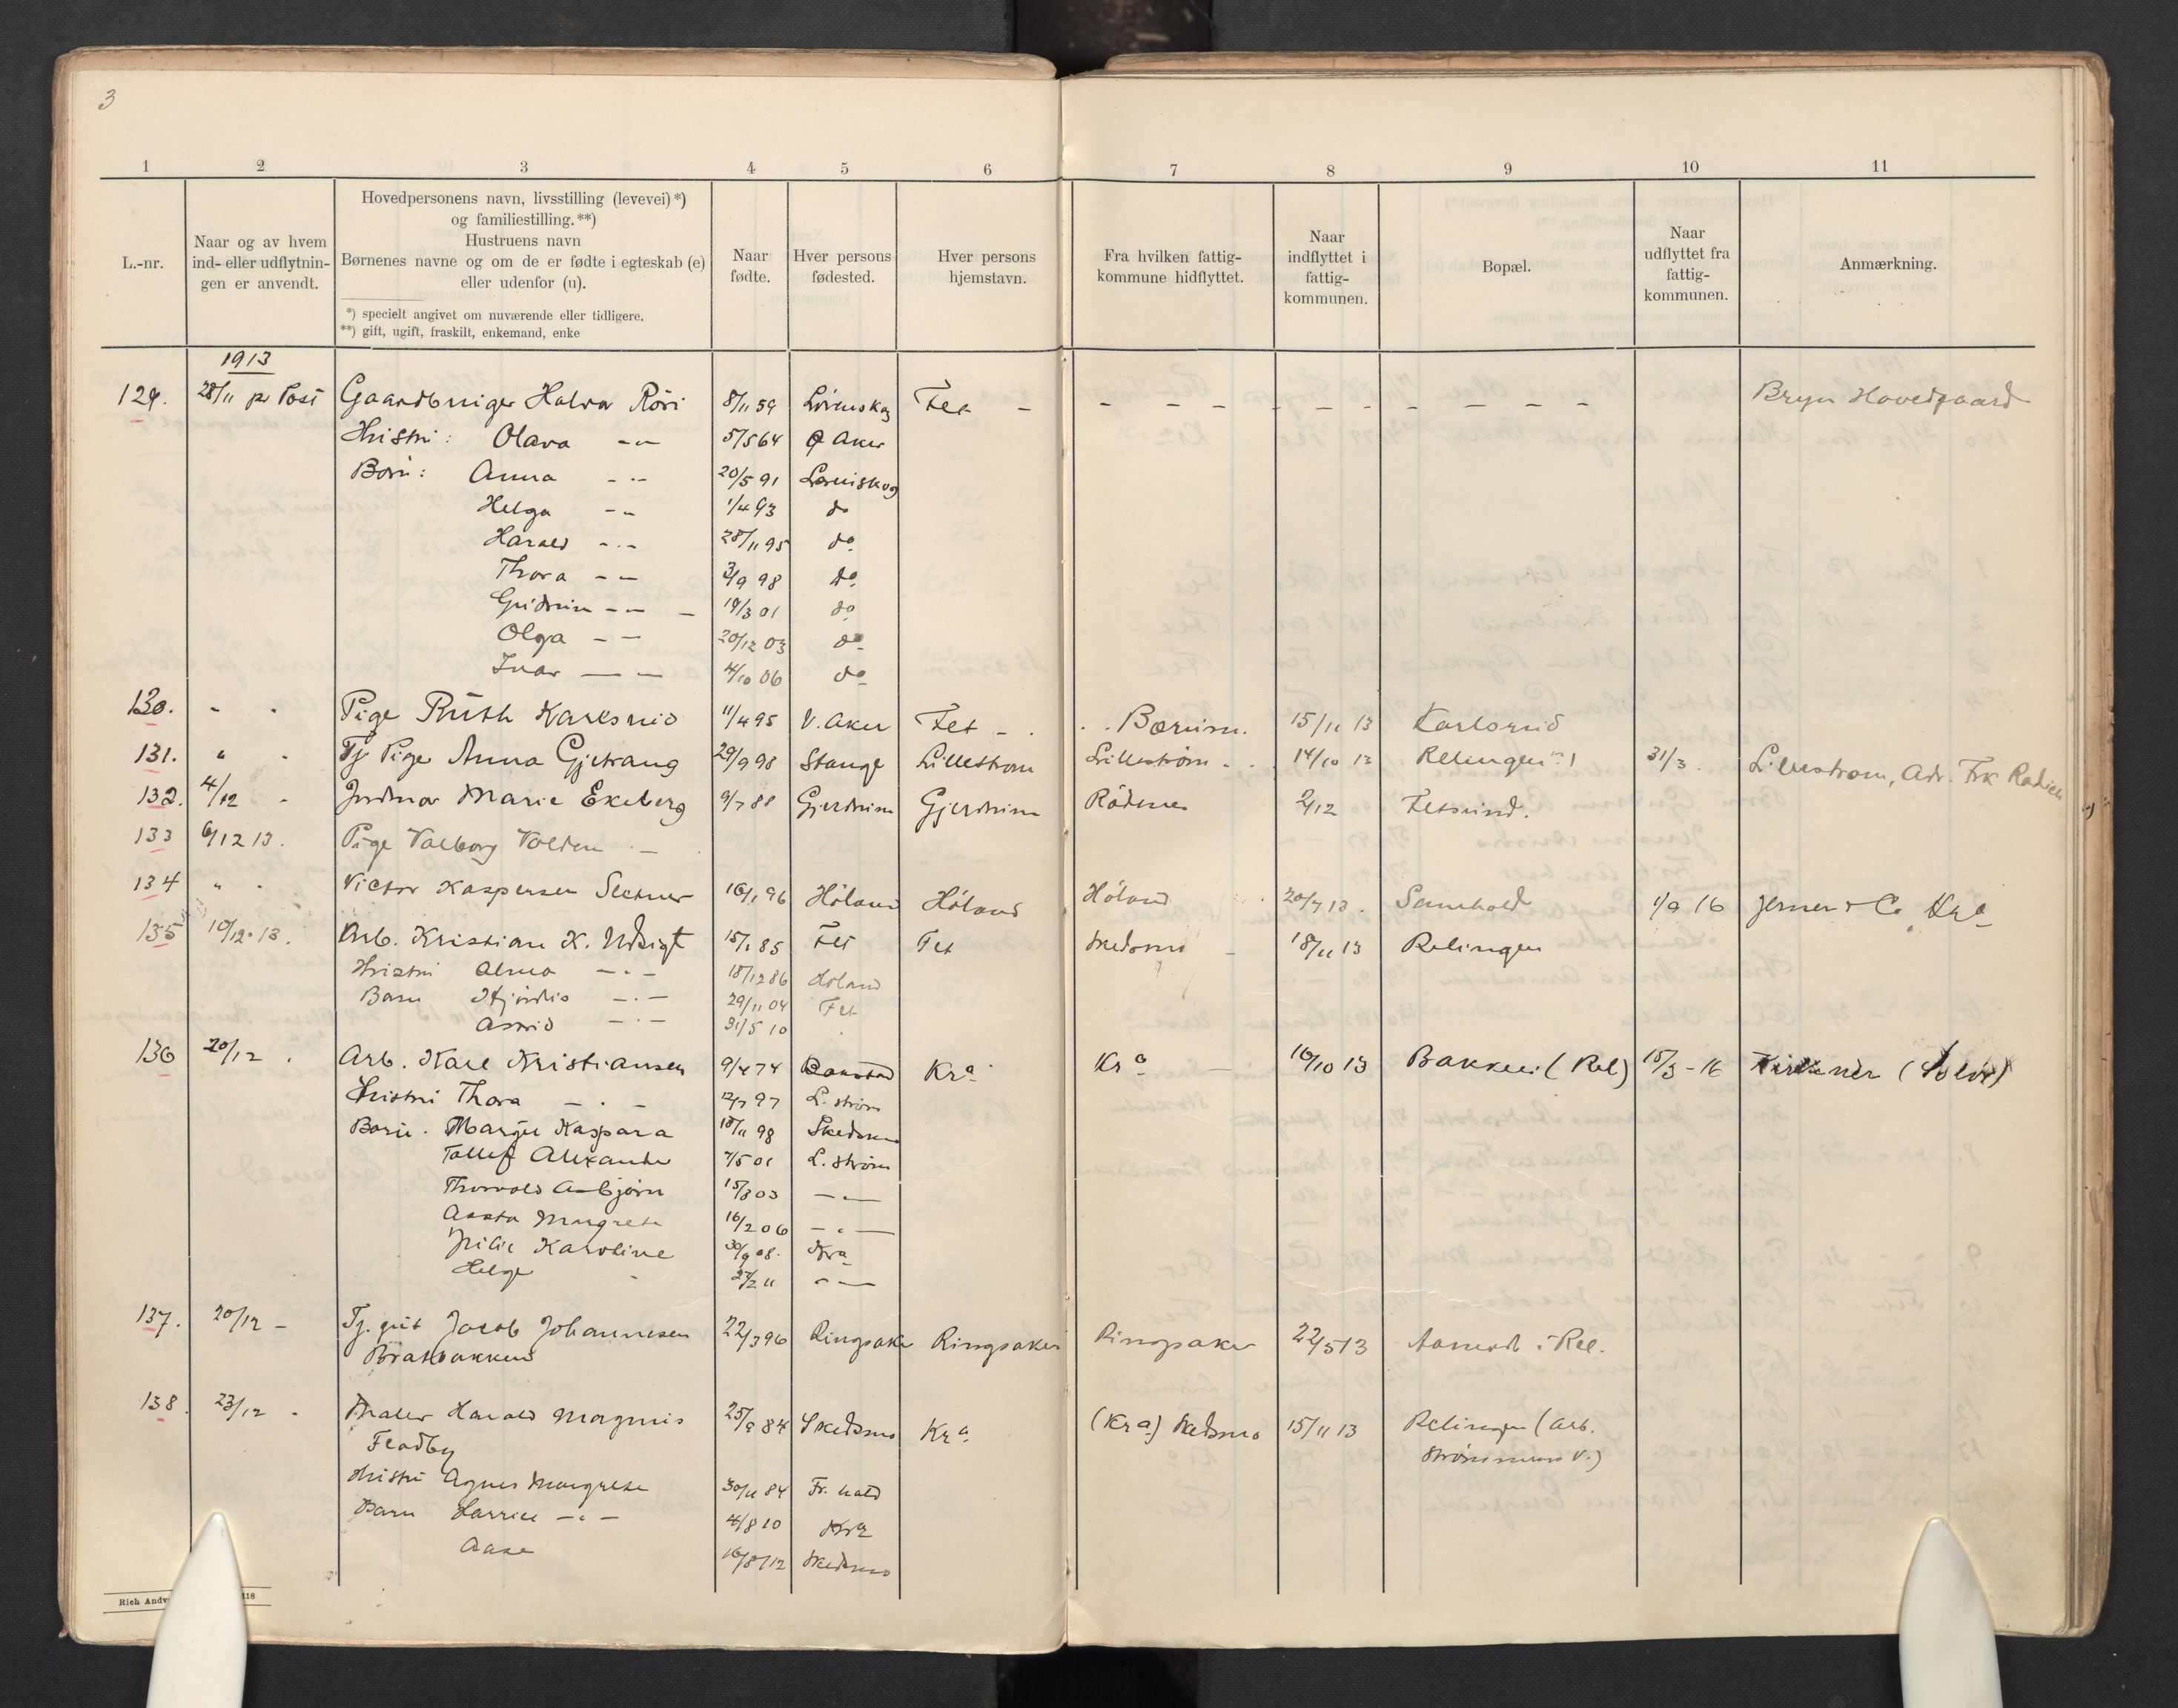 3
1 2 3 4 5 6 7 8 9 10 11
L.-nr.
Naar og av hvem
ind- eller udflytnin-
gen er anvendt.
Hovedpersonens navn, livsstilling (levevei)*)
og familiestilling.**)
Hustruens navn
Børnenes navne og om de er fødte i egteskab (e)
eller udenfor (u).
*) specielt angivet om nuværende eller tidligere.
**) gift, ugift, fraskilt, enkemand, enke
Naar
fødte.
Hver persons
fødested.
Hver persons
hjemstavn.
Fra hvilken fattig-
kommune hidflyttet.
Naar
indflyttet i
fattig-
kommunen.
Bopæl.
Naar
udflyttet fra
fattig-
kommunen.
Anmærkning.
1913
129. 28/11 pr Post Gaardbruger Halvor Röri 8/11 59 Lörenskog Fet – – – – – – – – – – – Bryn Hovedgaard
Hustru: Olava -"- 5/5 64 Ø Aker
Börn: Anna -"- 20/5 91 Lørenskog
Helga -"- 1/4 93 do
Harald -"- 28/11 95 do
Thora -"- 3/9 98 do
Gudrun -"- 19/3 01 do
Olga -"- 20/12 03 do
Ivar -"- 4/10 06 do
130. " " Pige Ruth Karlsrud 11/4 95 V. Aker Fet - Bærum. 15/11 13 Karlsrud
131. " " Tj Pige Anna Gjetrang 29/9 98 Stange Lillestrøm Lillestrøm 14/10 13 Relingen 31/3. Lillestrøm, Adr. Frk Radich
132. 4/12 " Jordmor Marie Ekeberg 9/7 88 Gjerdrum Gjerdrum Rödenes 2/12 Fetsund.
133 6/12 13. Pige Valborg Volden
134 " " Victor Kaspersen 16/1 96 Höland Höland Höland 20/7 13. Samhold 1/9 16 & Co Kra
135 10/12-13. Arb. Kristian K. Udsigt 15/1 85 Fet Fet Skedsmo - 18/11 13 Relingen
Hustru Alma -"- 18/12 86 Höland
Barn Hjördis -"- 29/11 04 Fet
Astrid -"- 31/5 10
136 20/12 . Arb. Karl Kristiansen 9/4 74 Kra Kra 16/10 13 Bakken (Rel) 15/3-16
Hustru Thora -"- 12/7 97 L. strøm
Børn. Margit Kaspara 18/11 98 Skedsmo
Tollef Alexander 7/5 01 L. strøm
Thorvald Asbjørn 15/8 03 -"-
Aasta Margrete 16/2 06 -"-
Karoline 30/9 08. Kra
Helge 27/2 11 -"-
137. 20/12 - Tj. gut Jacob Johannesen 22/3 96 Ringsaker Ringsaker Ringsaker 22/5 13 i Rel.
Bratbakken
138. 23/12 . Maler Harald Magnus 25/9 84 Skedsmo Kra (Kra) Skedsmo 15/11 13 Relingen (Arb.
Fladby Strømmens V.)
Hustru Agnes Margrete 30/11 84 Fr. hald
Barn -"- 4/8 10 Kra
Aase 16/8 12 Skedsmo
Rich Andv 118